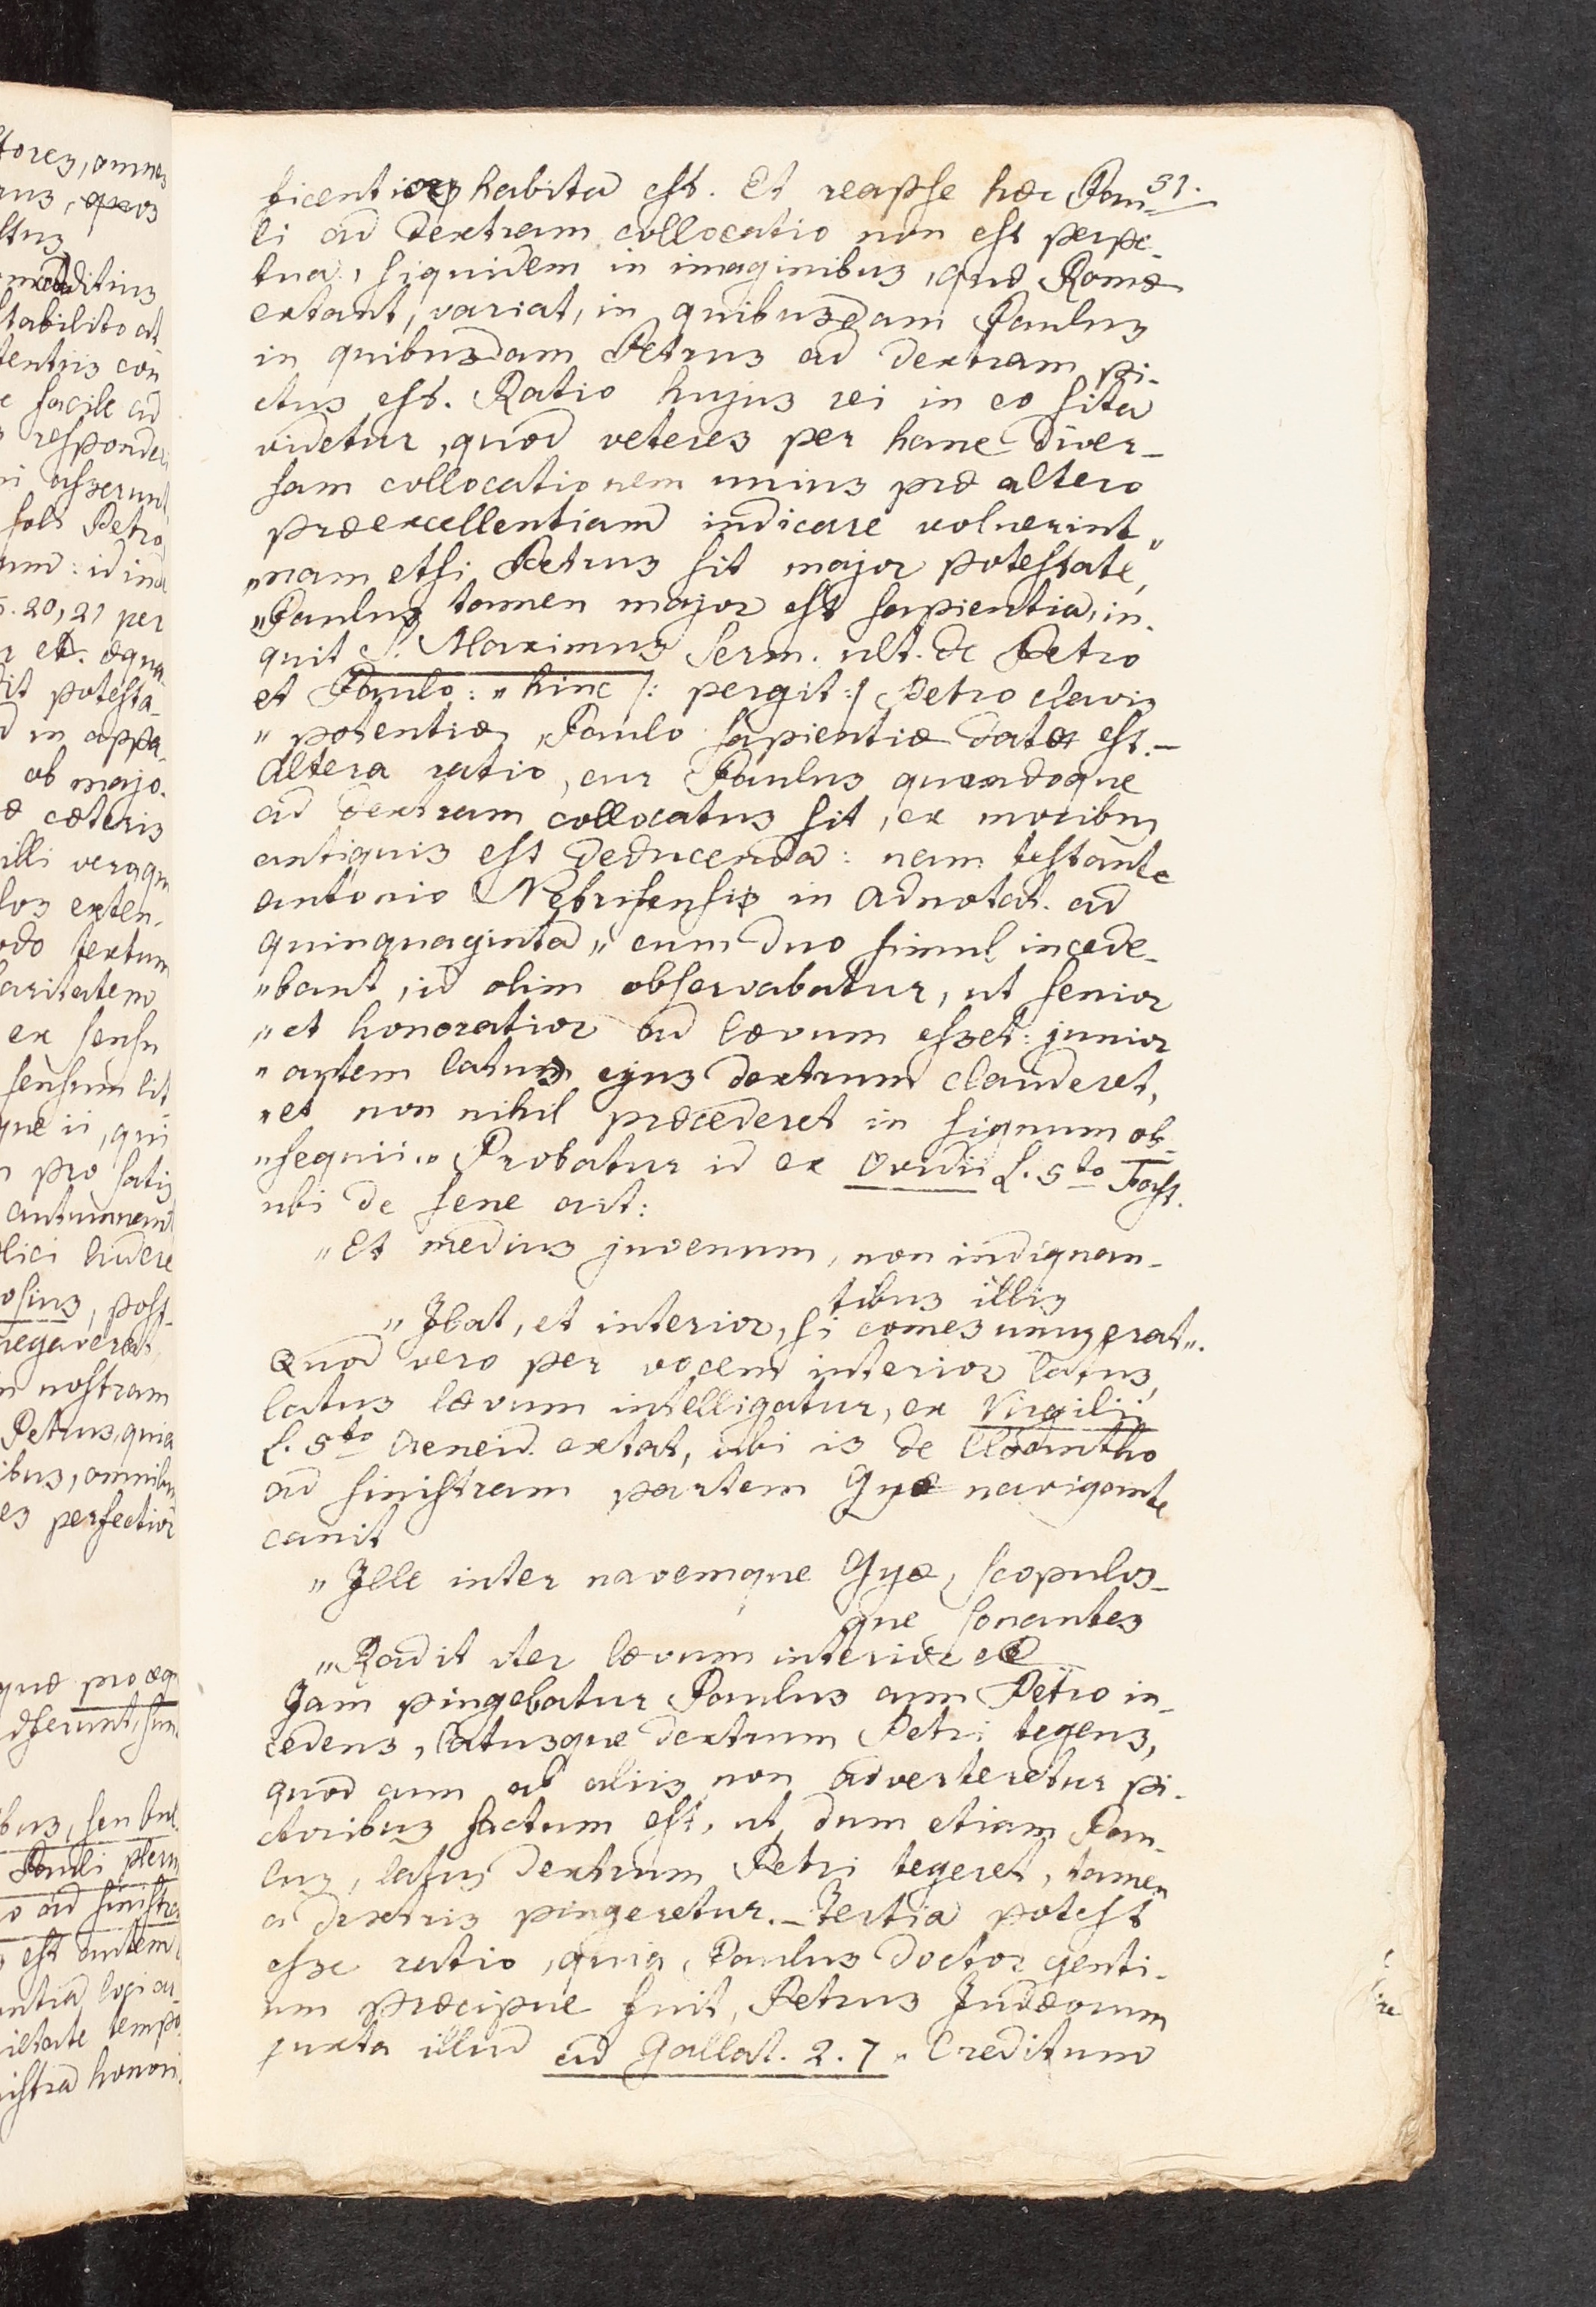 tores, omnes
rus, quos
ctus
omaditius
stabilito at
tentiis con
e facile ad
s responder
ni asserunt
soli Petro
um: id ind
5. 20, 21 per
r et. æqua
dit potesta-
d in appa-
ob majo-
æ cæteris
illi veraqu
los exten-
odo textum
laritatem
ex sensu
sensum lit
que ii, qui
m pro satis
autumnent
olici ludere
osius, post-
negaverat
in nostram
Petrus, quia
ibus, omnibu
es perfectior
quæ pro æq
asserunt, sun
bus, seu bul
Pauli plerū
o ad sinistra
s est autem
antia loci au-
ietate tempo
nistra honori
ficentior habita est. Et reapse hæc Pau- 51.
li ad dextram collocatio non est perpe-
tua, siquidem in imaginibus, quæ Romæ
extant, variat, in quibusdam Paulus
in quibusdam Petrus ad dextram pi-
ctus est. Ratio hujus rei in eo sita
videtur, quod veteres per hanc diver-
sam collocationem unius præ altero
præexcellentiam indicare voluerint „
„nam etsi Petrus sit major potestate,
„Paulus tamen major est sapientia, in-
quit S. Maximus Serm. ult. de Petro
et Paulo: „hinc /: pergit :/ Petro clavis
„potentiæ, Paulo sapientiæ data est. —
Altera ratio, cur Paulus quandoque
ad dextram collocatus sit, ex moribus
antiquis est deducenda: nam testante
Antonio Nebrisensis in Adnotat. ad
quinquaginta „cum duo simul incede-
„bant, id olim observabatur, ut senior
„et honoratior ad lævum esset: junior
„autem latus ejus dextrum clauderet,
„et non nihil præcederet in signum ob-
„sequii." Probatur id ex Ovidii L. 5to Fast.
ubi de sene ait:
„Et medius juvenum, non indignan-
tibus illis
„Ibat, et interior, si comes unus erat".
Quod vero per vocem interior latus,
latus lævum intelligatur, ex Virgilii
L. 5to Aeneid. extat, ubi is de Cloantho
ad sinistram partem Gyæ navigante
canit
„Ille inter navemque Gyæ, scopulos-
que sonantes
„Radit iter lævum interior et
Jam pingebatur Paulus cum Petro in-
cedens, latusque dextrum Petri tegens,
quod cum ab aliis non adverteretur pi-
ctoribus factum est, ut, dum etiam Pau-
lus, latus dextrum Petri tegeret, tamen
a dextris pingeretur. — Tertia potest
esse ratio, quia, Paulus doctor genti-
um præcipue fuit, Petrus Judæorum
juxta illud ad Gallat. 2. 7 „Creditum